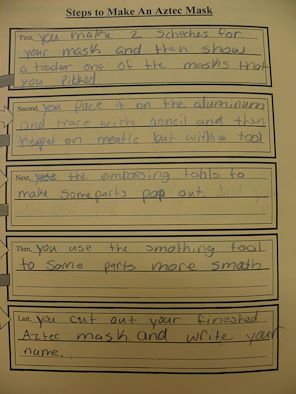 Steps to Make An Aztec Mask
First, you make 2 scheches for
your mask and then show
a teader one of the masks that
you picked
Second, you pace it on the aluminum
and trace withe pencil and then
on meatlc but with a tool
Next, use the embossing tools to
make some parts pop out.
Then, you use the smothing tool
to some parts more smath
Last, you cut out your fineshed
Aztec mask and write your
name.